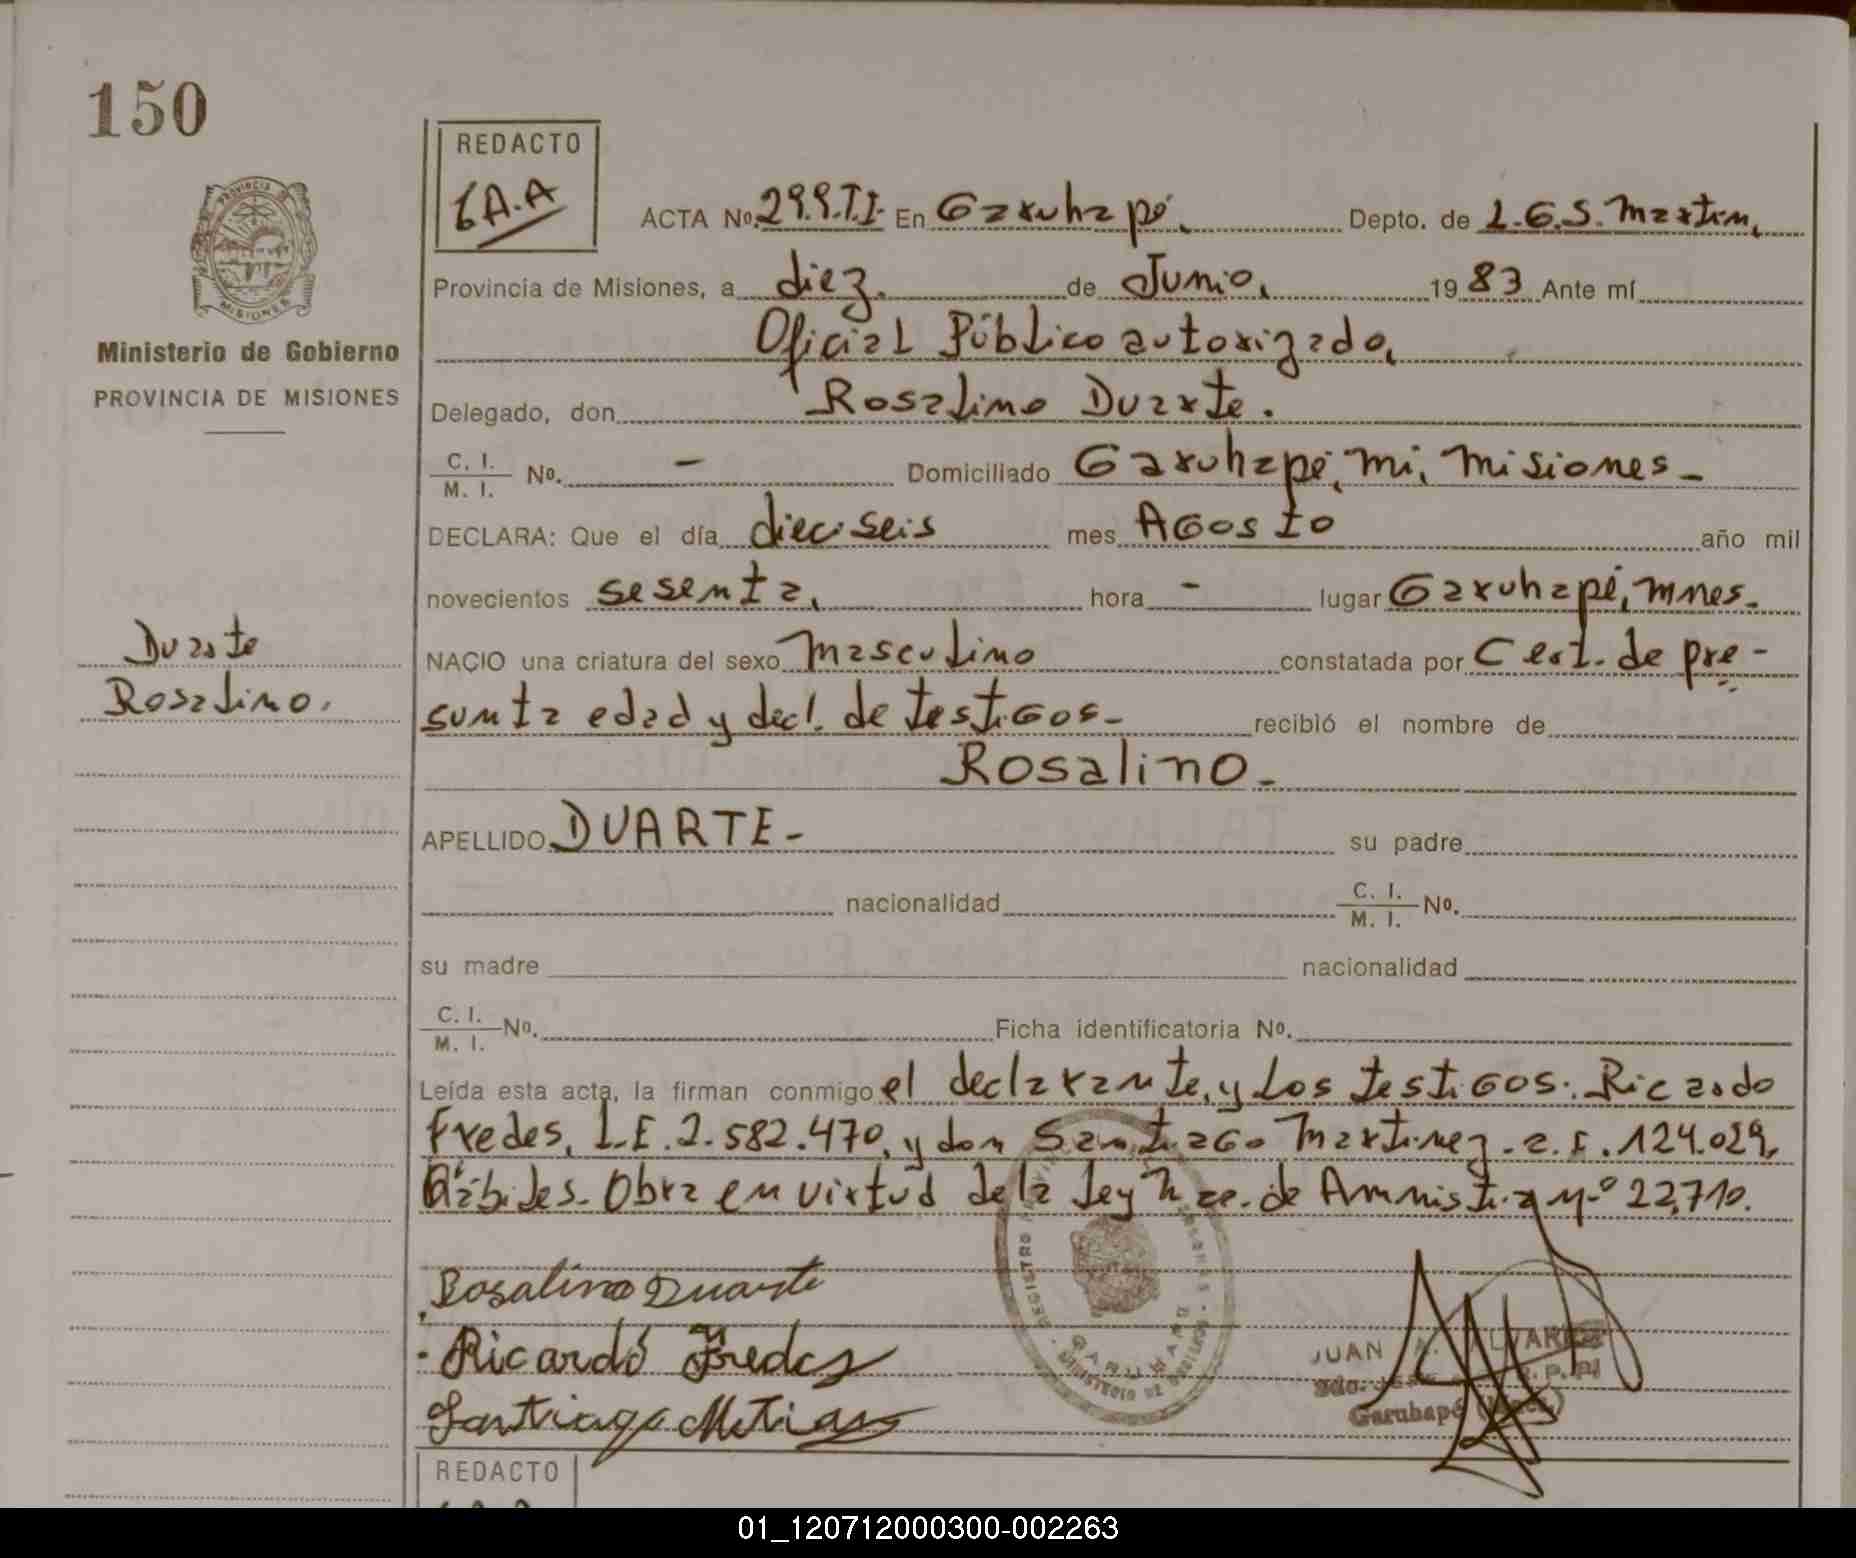 150
REDACTO
ACTA No. 299.T.I. En Garuhapé, Depto. de L.G.S. Martin,
Provincia de Misiones, a diez. de Junio, 1983 Ante mí
Oficial Público autorizado,
Delegado, don Rosalino Duarte.
C. I. / M. I. No. - Domiciliado Garuhapé, Mi, Misiones -
DECLARA: Que el día dieciseis mes AGosto año mil
novecientos sesenta, hora - lugar Garuhapé, Mnes.
NACIO una criatura del sexo Masculino constatada por Cert. de pre-
sunta edad y decl. de testigos- recibió el nombre de
Rosalino -
APELLIDO DUARTE - su padre
nacionalidad C. I. / M. I. No.
su madre nacionalidad
C. I. / M. I. No. Ficha identificatoria No.
Leída esta acta, la firman conmigo el declarante, y Los testigos: Ricardo
Fredes, L.E. 2.582.470, y don Santiago Martinez - 124.029,
Hábiles. Obra en virtud de la Ley Nac. de Amnistia nº 22.710.
Rosalino Duarte
Ricardo Fredes
Santiago
JUAN A. ALVAREZ
Garuhapé
PROVINCIA DE
MISIONES
Ministerio de Gobierno
PROVINCIA DE MISIONES
Duarte
Rosalino.
REDACTO
01_120712000300-002263